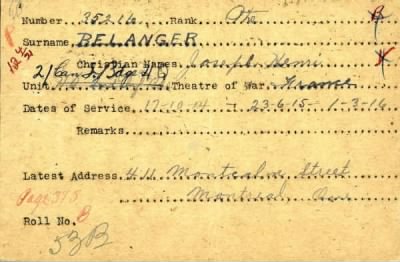 Number. 35216 Rank. Pte B
Surname BELANGER
Christian Names Joseph Henri
Unit Theatre of War. France
Dates of Service 17-10-04 - 23-6-15 - 1-3-16
Remarks
Latest Address 46 Montcalm Street
Page 315 Montreal, Que
Roll No. B
53B